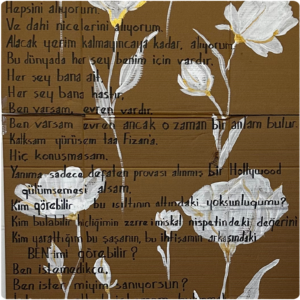 Hepsini alıyorum.
Ve dahi nicelerini alıyorum.
Alacak yerim kalmayıncaya kadar, alıyorum.
Bu dünyada her şey benim için vardır.
Her şey bana ait,
Her şey bana hastır,
Ben varsam, evren vardır.
Ben varsam evren ancak o zaman bir anlam bulur.
Kalksam yürüsem taa Fizana.
Hiç konuşmasam.
Yanıma sadece defaten provası alınmış bir Hollywood
gülümsemesi alsam,
Kim görebilir bu ışıltının altındaki yoksunluğumu?
Kim bulabilir hiçliğimin zerre miskal nispetindeki değerini
Kim yarattığım bu şaşanın, bu ihtişamın arkasındaki
BEN'imi görebilir?
Ben istemedikçe,
Ben ister miyim sanıyorsun?